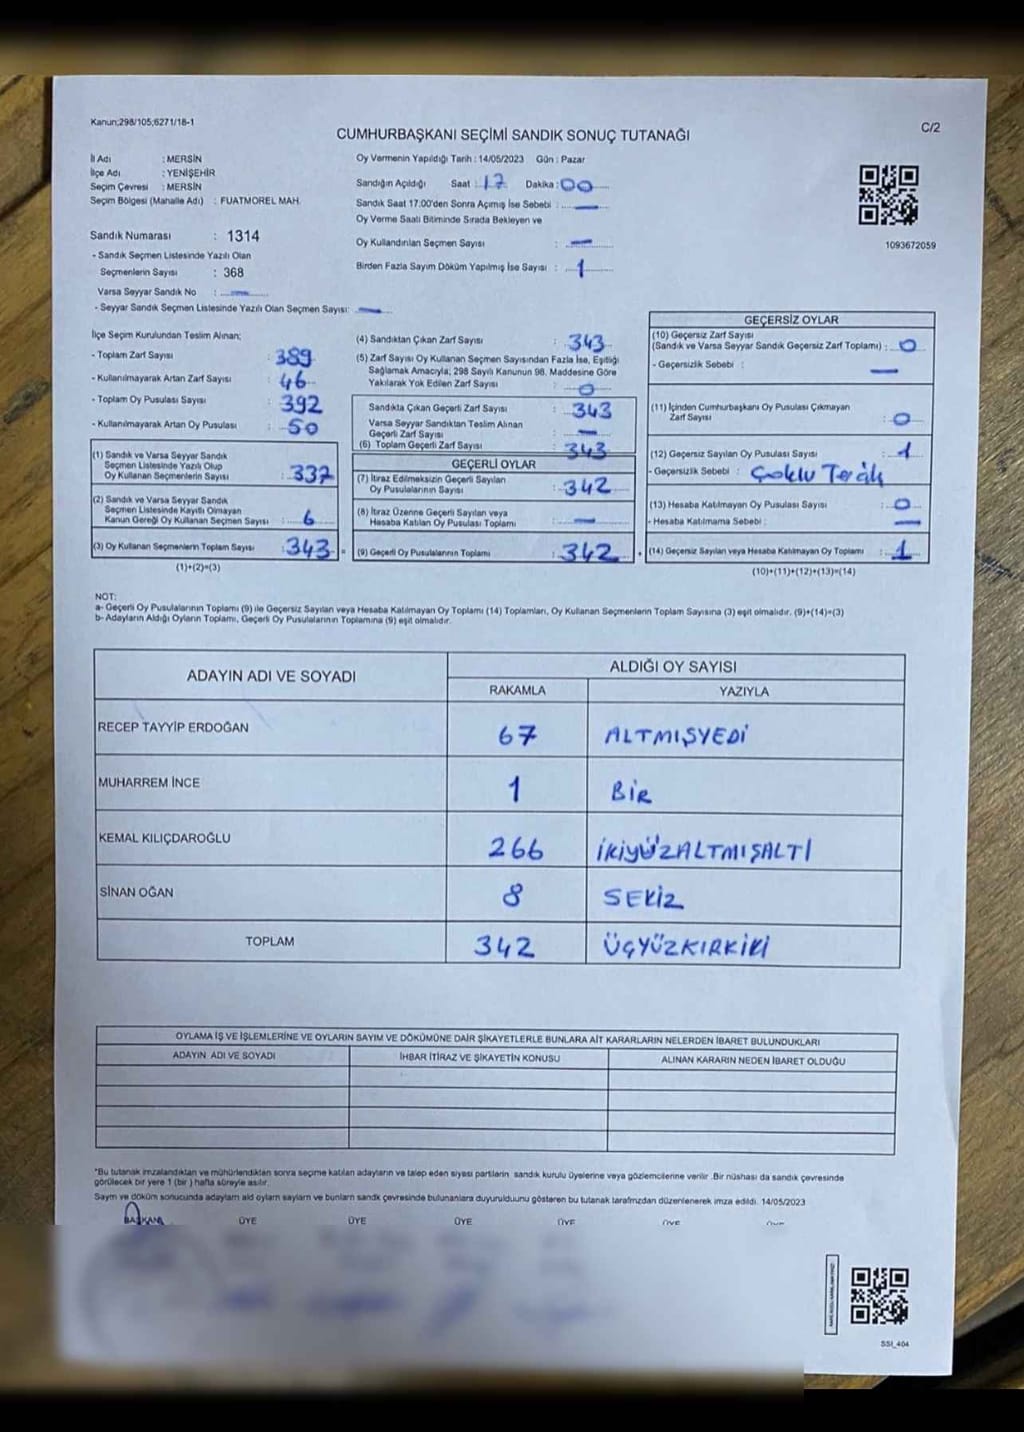 Kanun;298/105;6271/18-1
C/2
CUMHURBAŞKANI SEÇİMİ SANDIK SONUÇ TUTANAĞI
İl Adı : MERSİN
İlçe Adı : YENİŞEHİR
Seçim Çevresi : MERSİN
Seçim Bölgesi (Mahalle Adı) : FUATMOREL MAH.
Sandık Numarası : 1314
- Sandık Seçmen Listesinde Yazılı Olan
Seçmenlerin Sayısı : 368
Varsa Seyyar Sandık No : —
- Seyyar Sandık Seçmen Listesinde Yazılı Olan Seçmen Sayısı: —
Oy Vermenin Yapıldığı Tarih : 14/05/2023 Gün : Pazar
Sandığın Açıldığı Saat : 17 Dakika : 00
Sandık Saat 17:00'den Sonra Açımış İse Sebebi : —
Oy Verme Saati Bitiminde Sırada Bekleyen ve
Oy Kullandırılan Seçmen Sayısı : —
Birden Fazla Sayım Döküm Yapılmış İse Sayısı : 1
1093672059
İlçe Seçim Kurulundan Teslim Alınan;
- Toplam Zarf Sayısı : 389
- Kullanılmayarak Artan Zarf Sayısı : 46
- Toplam Oy Pusulası Sayısı : 392
- Kullanılmayarak Artan Oy Pusulası : 50
(1) Sandık ve Varsa Seyyar Sandık
Seçmen Listesinde Yazılı Olup
Oy Kullanan Seçmenlerin Sayısı : 337
(2) Sandık ve Varsa Seyyar Sandık
Seçmen Listesinde Kayıtlı Olmayan
Kanun Gereği Oy Kullanan Seçmen Sayısı : 6
(3) Oy Kullanan Seçmenlerin Toplam Sayısı : 343 =
(1)+(2)=(3)
(4) Sandıktan Çıkan Zarf Sayısı : 343
(5) Zarf Sayısı Oy Kullanan Seçmen Sayısından Fazla İse, Eşitliği
Sağlamak Amacıyla; 298 Sayılı Kanunun 98. Maddesine Göre
Yakılarak Yok Edilen Zarf Sayısı : 0
Sandıkta Çıkan Geçerli Zarf Sayısı : 343
Varsa Seyyar Sandıktan Teslim Alınan
Geçerli Zarf Sayısı : —
(6) Toplam Geçerli Zarf Sayısı : 343
GEÇERLİ OYLAR
(7) İtiraz Edilmeksizin Geçerli Sayılan
Oy Pusulalarının Sayısı : 342
(8) İtiraz Üzerine Geçerli Sayılan veya
Hesaba Katılan Oy Pusulası Toplamı : —
(9) Geçerli Oy Pusulalarının Toplamı : 342 +
GEÇERSİZ OYLAR
(10) Geçersiz Zarf Sayısı
(Sandık ve Varsa Seyyar Sandık Geçersiz Zarf Toplamı) : 0
- Geçersizlik Sebebi : —
(11) İçinden Cumhurbaşkanı Oy Pusulası Çıkmayan
Zarf Sayısı : 0
(12) Geçersiz Sayılan Oy Pusulası Sayısı : 1
- Geçersizlik Sebebi : Çoklu Tercih
(13) Hesaba Katılmayan Oy Pusulası Sayısı : 0
- Hesaba Katılmama Sebebi : —
(14) Geçersiz Sayılan veya Hesaba Katılmayan Oy Toplamı : 1
(10)+(11)+(12)+(13)=(14)
NOT:
a- Geçerli Oy Pusulalarının Toplamı (9) ile Geçersiz Sayılan veya Hesaba Katılmayan Oy Toplamı (14) Toplamları, Oy Kullanan Seçmenlerin Toplam Sayısına (3) eşit olmalıdır. (9)+(14)=(3)
b- Adayların Aldığı Oyların Toplamı, Geçerli Oy Pusulalarının Toplamına (9) eşit olmalıdır.
ADAYIN ADI VE SOYADI
ALDIĞI OY SAYISI
RAKAMLA YAZIYLA
RECEP TAYYİP ERDOĞAN 67 ALTMIŞYEDİ
MUHARREM İNCE 1 BİR
KEMAL KILIÇDAROĞLU 266 İKİYÜZALTMIŞALTI
SİNAN OĞAN 8 SEKİZ
TOPLAM 342 ÜÇYÜZKIRKİKİ
OYLAMA İŞ VE İŞLEMLERİNE VE OYLARIN SAYIM VE DÖKÜMÜNE DAİR ŞİKAYETLERLE BUNLARA AİT KARARLARIN NELERDEN İBARET BULUNDUKLARI
ADAYIN ADI VE SOYADI İHBAR İTİRAZ VE ŞİKAYETİN KONUSU ALINAN KARARIN NEDEN İBARET OLDUĞU
*Bu tutanak imzalandıktan ve mühürlendikten sonra seçime katılan adayların ve talep eden siyasi partilerin sandık kurulu üyelerine veya gözlemcilerine verilir. Bir nüshası da sandık çevresinde
görülecek bir yere 1 (bir) hafta süreyle asılır.
Sayım ve döküm sonucunda adayların ald oyların sayların ve bunların sandk çevresinde bulunanlara duyurulduunu gösteren bu tutanak tarafmzdan düzenlenerek imza edildi. 14/05/2023
BAŞKAN ÜYE ÜYE ÜYE ÜYE ÜYE ÜYE
SSI_404